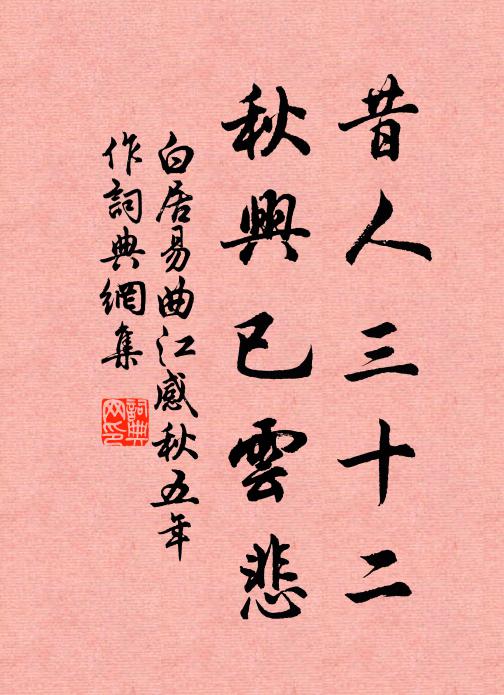 昔人三十二
秋興已雲悲
白居易曲江感秋五年
作詞典網集
詞典
网印